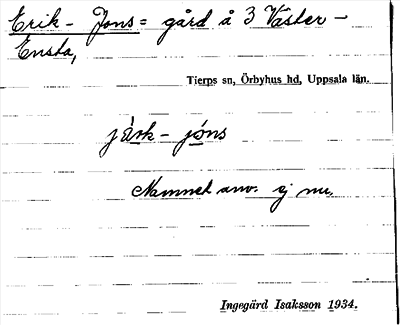 Erik- Jons = gård å 3 Väster-
Ensta,
Tierps sn, Örbyhus hd, Uppsala län.
jèrk- jóns
Namnet anv. ej nu.
Ingegärd Isaksson 1934.